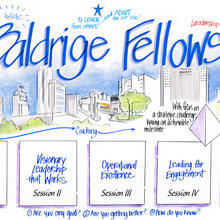 holistic
to LEARN
from others!
and ADAPT
for our use!
Leadership
Baldrige Fellows
Coaching
With focus on
a strategic challenge
having an actionable
milestone
Visionary
Leadership
that Works
Session II
Operational
Excellence
Session III
Leading for
Engagement
Session IV
① Are you any good? ② Are you getting better? ③ How do you know?